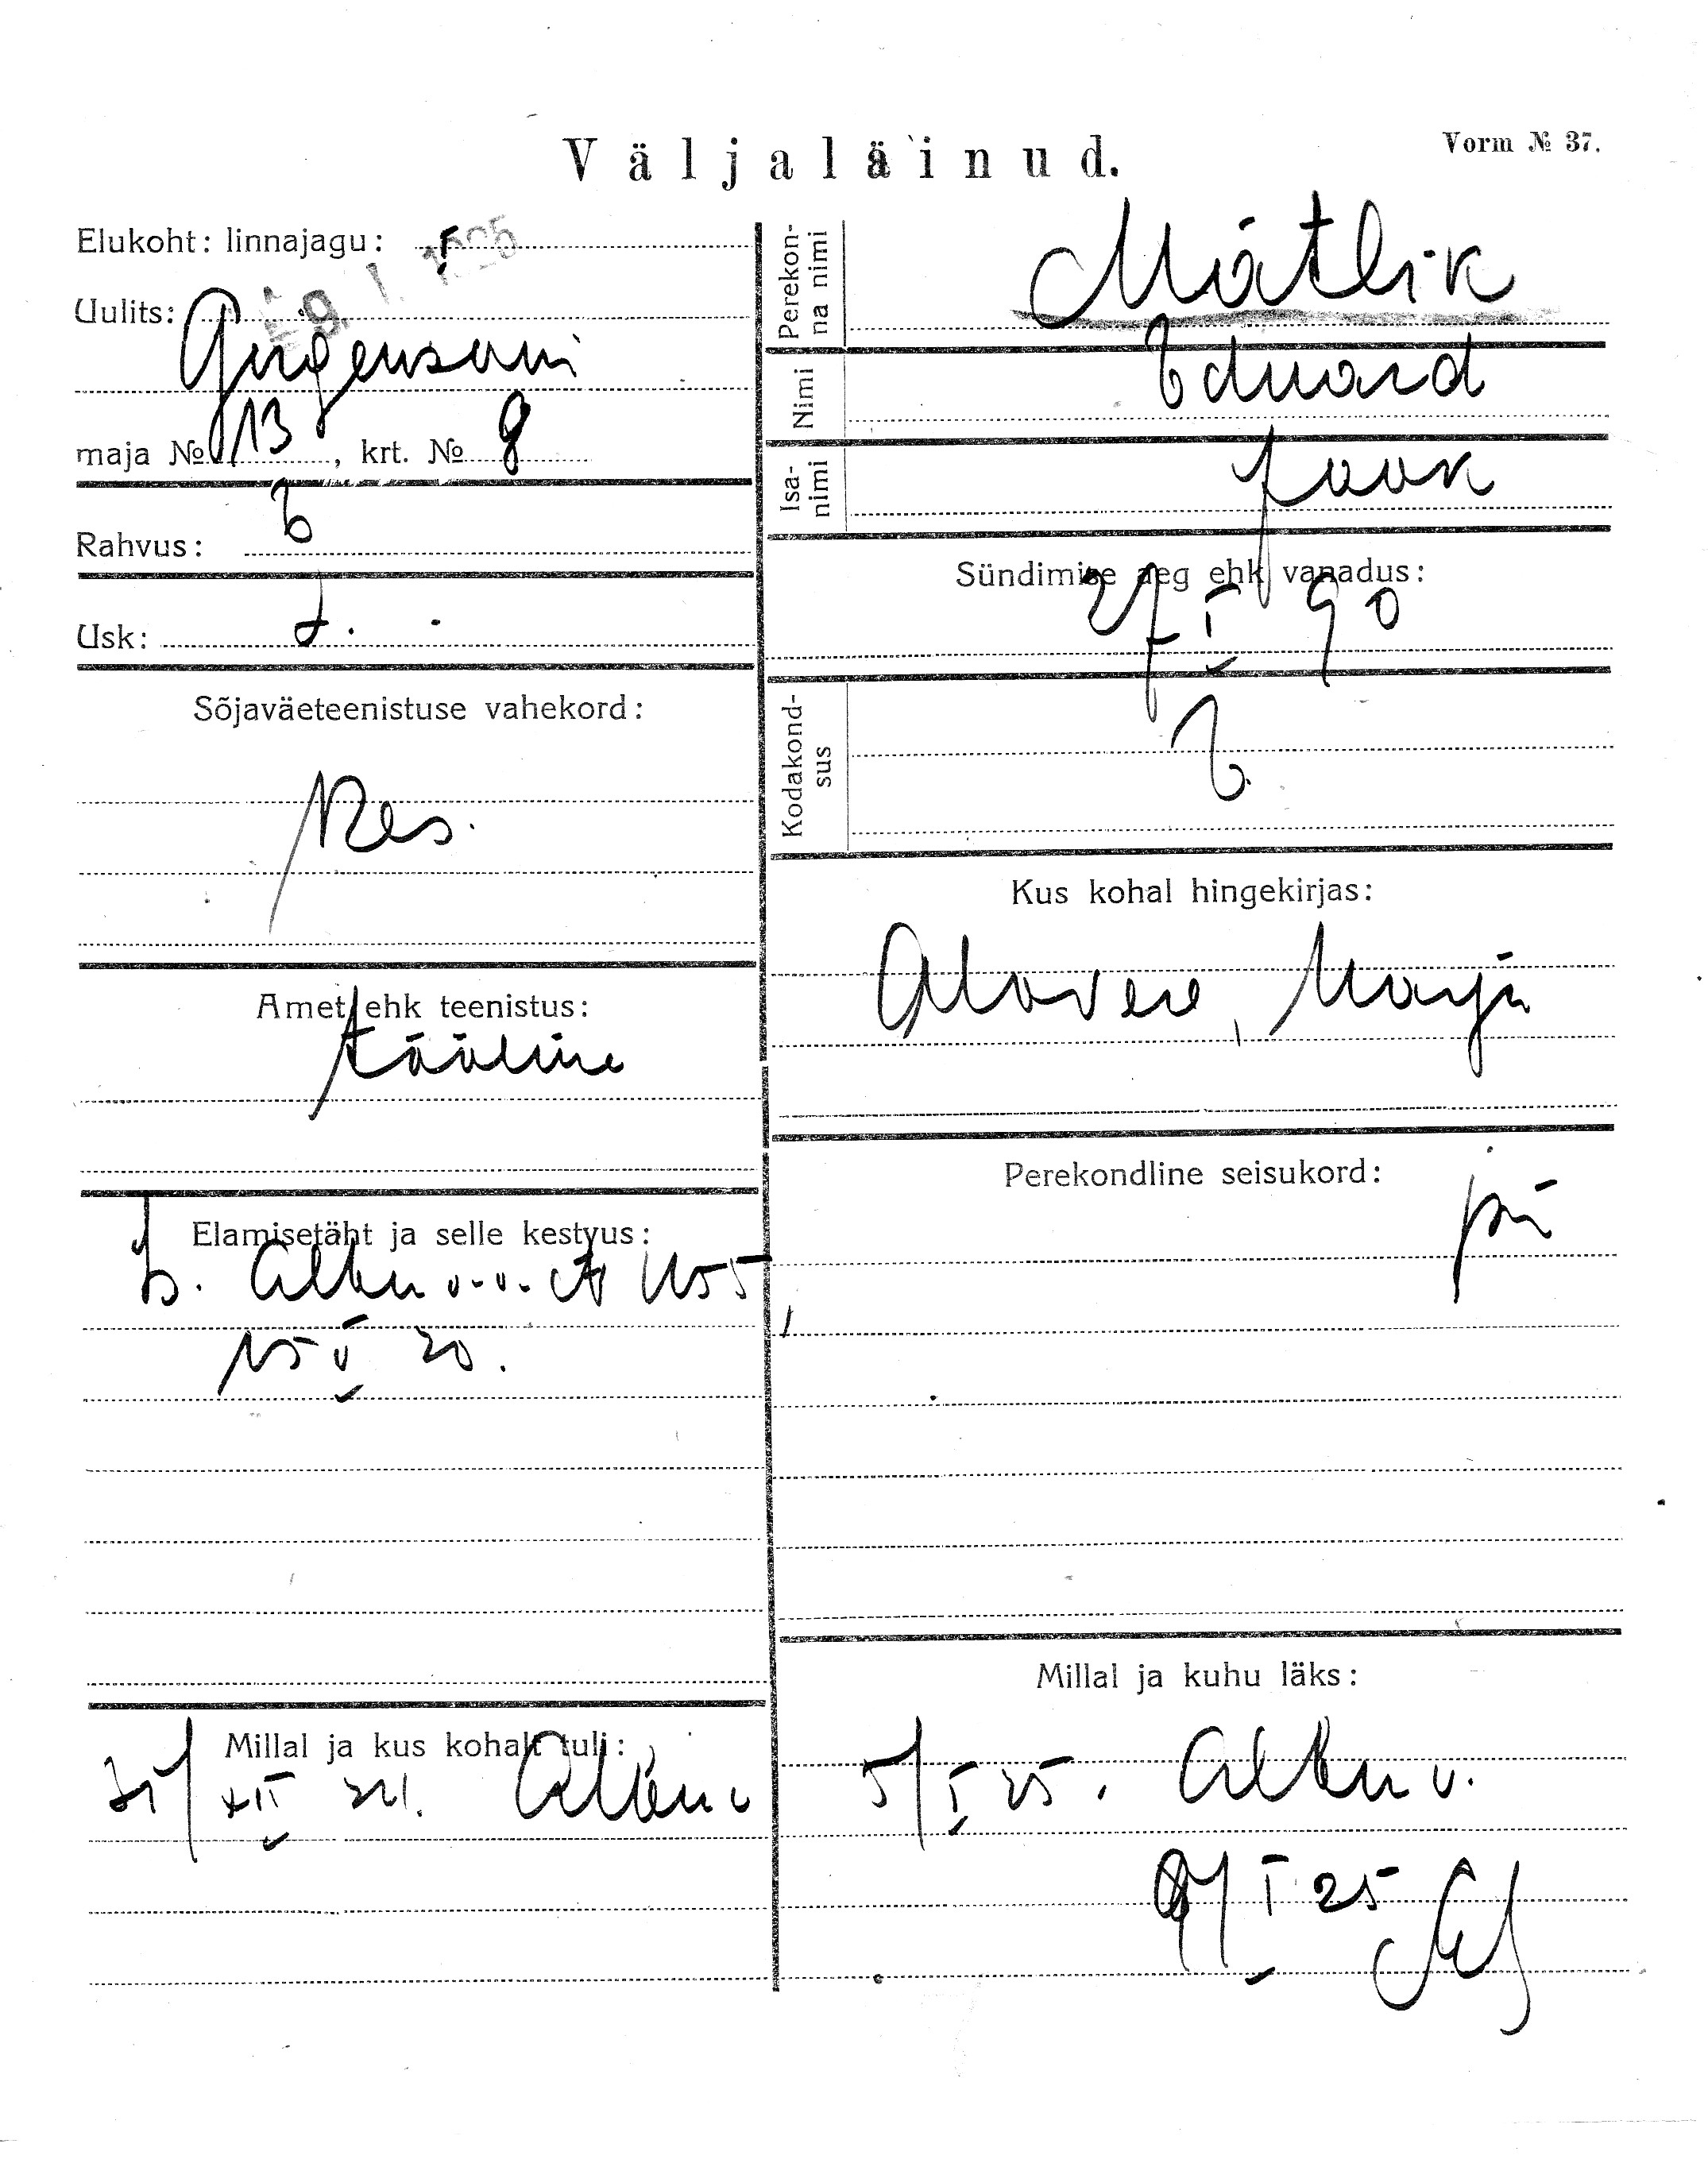 Väljaläinud.
Vorm № 37.
Elukoht: linnajagu: I
9. I. 1925
Uulits:
Jürgensoni
maja № 13, krt. № 8
Rahvus: E
Usk: L.
Sõjaväeteenistuse vahekord:
Res.
Amet ehk teenistus:
tööline
Elamisetäht ja selle kestvus:
Albu v.v. 1155,
15 V 20.
Millal ja kus kohalt tuli:
XII 24. Albu v
Perekonna nimi Mätlik
Nimi Eduard
Isanimi Jaak
Sündimise aeg ehk vanadus:
27 I 90
Kodakondsus E.
Kus kohal hingekirjas:
Alavere, Harju
Perekondline seisukord:
Millal ja kuhu läks:
5/I 25. Albu v.
I 25